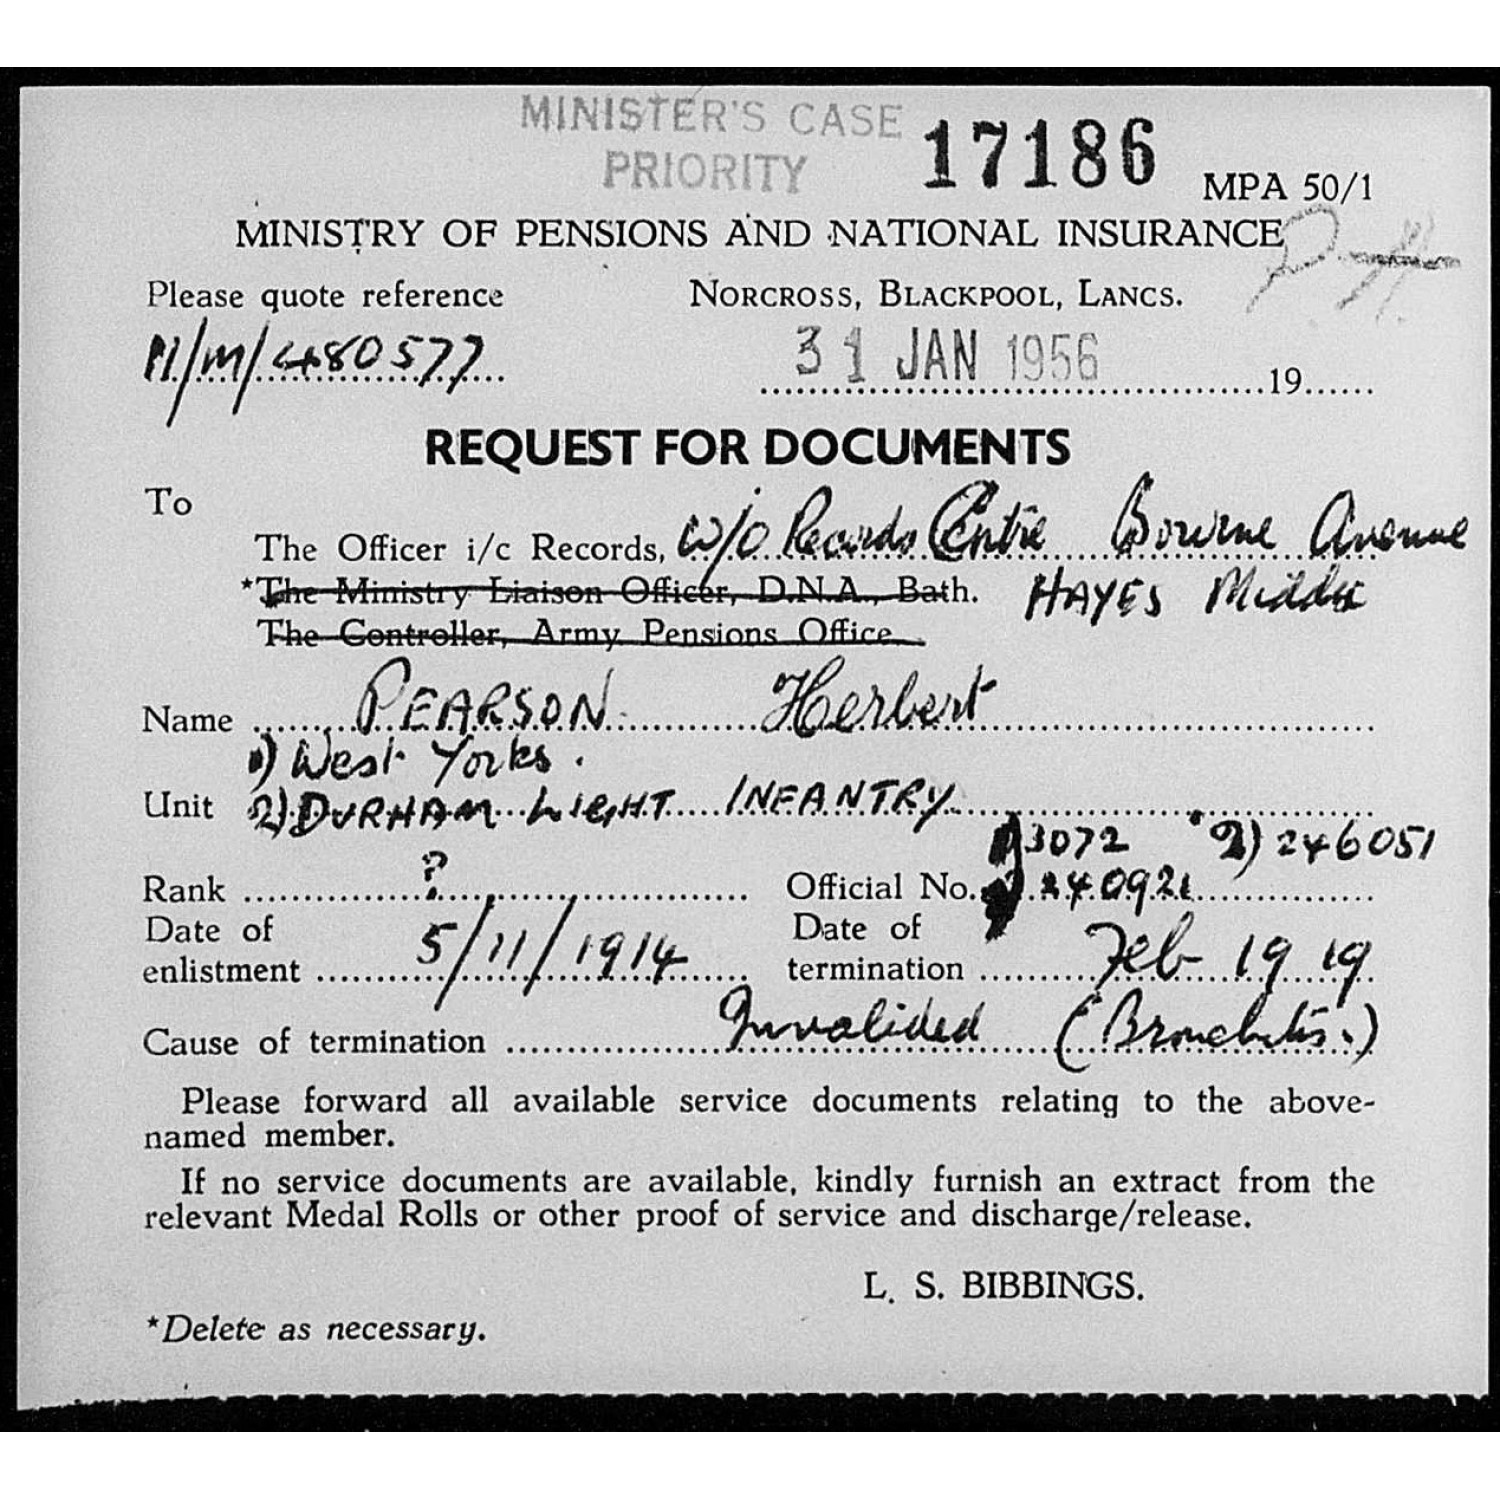 MINISTER'S CASE
PRIORITY
17186
MPA 50/1
MINISTRY OF PENSIONS AND NATIONAL INSURANCE
Please quote reference
NORCROSS, BLACKPOOL, LANCS.
M/M/480577
31 JAN 1956 19
REQUEST FOR DOCUMENTS
To
The Officer i/c Records, W/O Records Centre Bourne Avenue
*The Ministry Liaison Officer, D.N.A., Bath. HAYES Middx
The Controller, Army Pensions Office
Name PEARSON Herbert
1) West Yorks.
Unit 2) DURHAM LIGHT INFANTRY
3072 2) 246051
Rank ? Official No. 240921
Date of enlistment 5/11/1914 Date of termination Feb 1919
Cause of termination Invalided (Bronchitis.)
Please forward all available service documents relating to the above-
named member.
If no service documents are available, kindly furnish an extract from the
relevant Medal Rolls or other proof of service and discharge/release.
L. S. BIBBINGS.
*Delete as necessary.